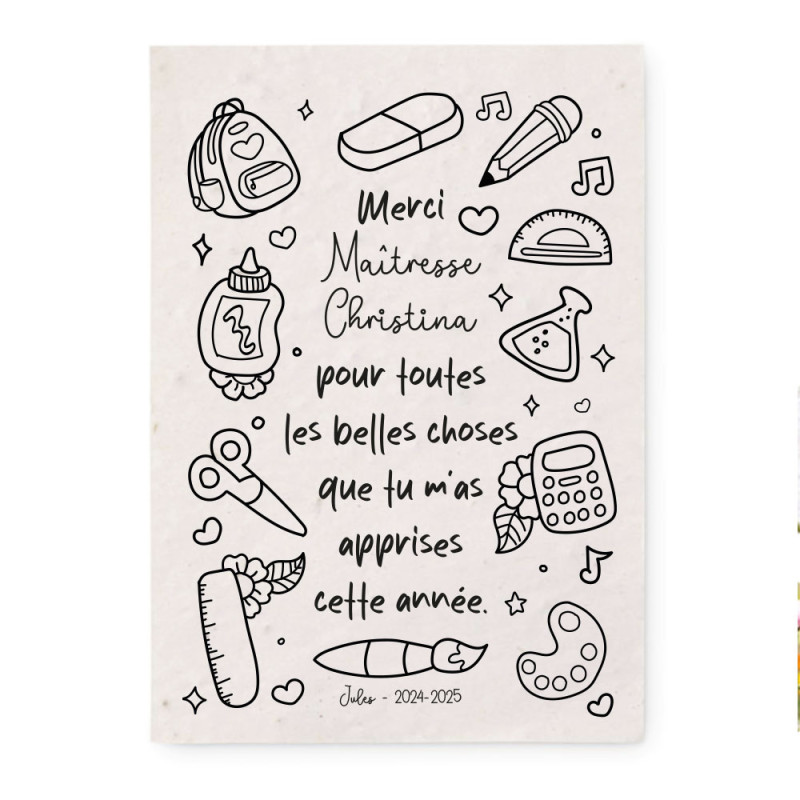 Merci
Maîtresse
Christina
pour toutes
les belles choses
que tu m'as
apprises
cette année.
Jules - 2024-2025